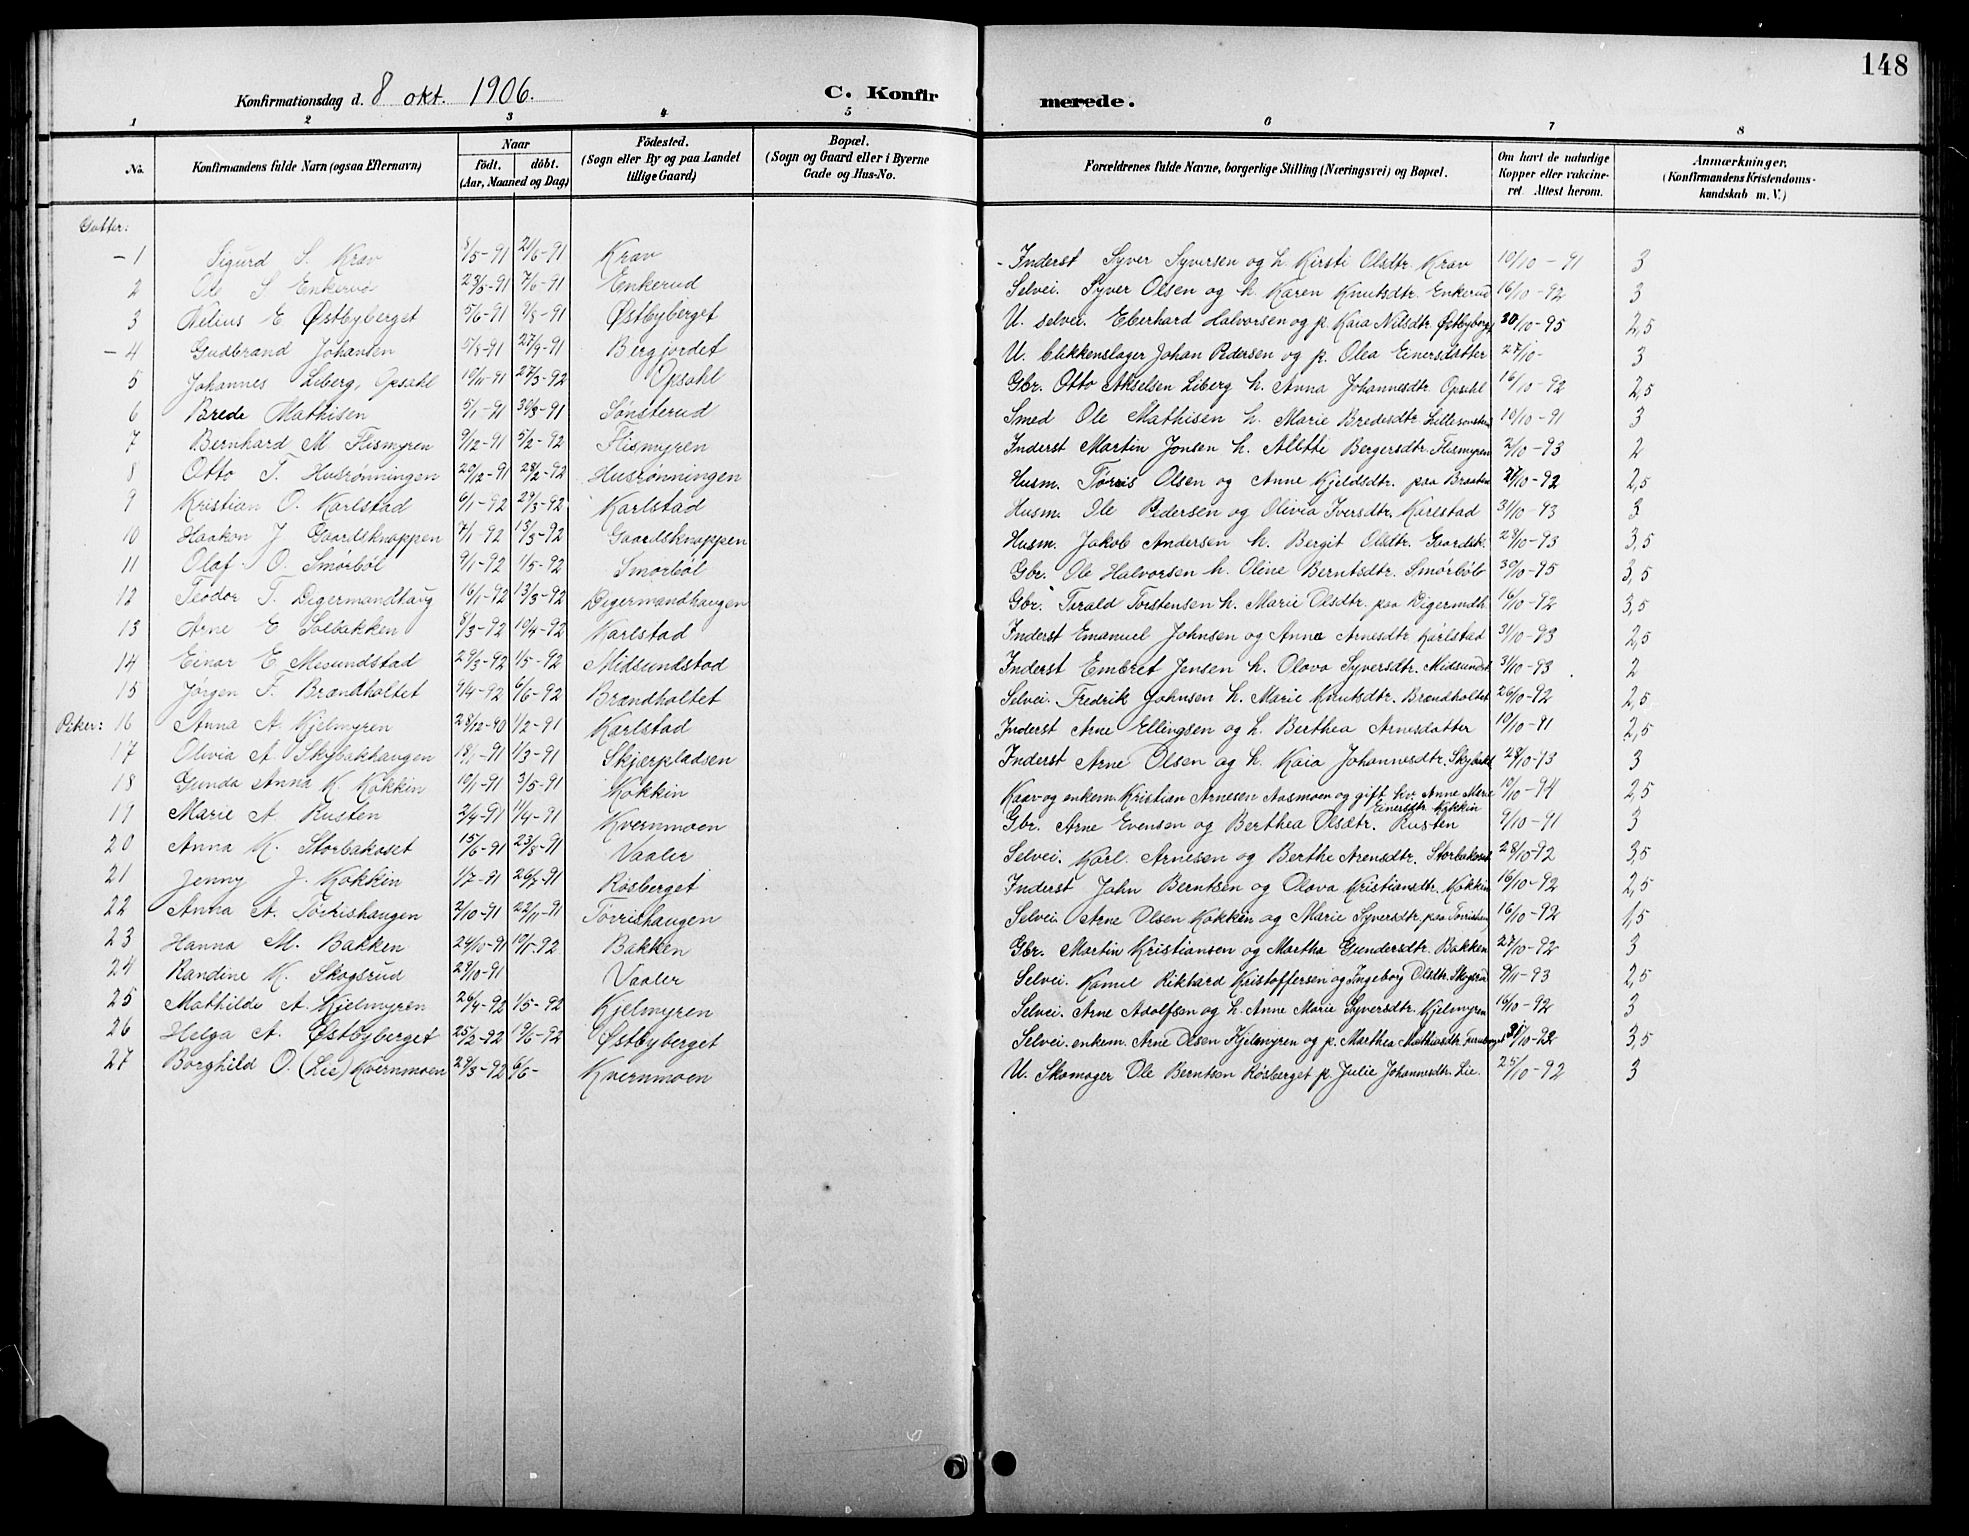 148
Konfirmationsdag d. 8 okt. 1906. C. Konfirmerede.
1 2 3 4 5 6 7 8
No. Konfirmandens fulde Navn (ogsaa Efternavn) Naar født. døbt. (Aar, Maaned og Dag) Fødested. (Sogn eller By og paa Landet tillige Gaard) Bopæl. (Sogn og Gaard eller i Byerne Gade og Hus-No. Forældrenes fulde Navne, borgerlige Stilling (Næringsvei) og Bopæl. Om havt de naturlige Kopper eller vakcineret. Attest herom. Anmærkninger. (Konfirmandens Kristendomskundskab m. V.)
Gutter:
1 Sigurd S. Krav 8/5-91 21/6-91 Krav Inderst Syver Syversen og h. Kirsti Olsdtr. Krav 10/10-91 3
2 Ole S Enkerud 23/3-91 7/6-91 Enkerud Selvei. Syver Olsen og h. Karen Knutsdtr. Enkerud 16/10-92 3
3 Helius E Østbyberget 5/6-91 9/8-91 Østbyberget U. selvei. Eberhard Halvorsen og p. Kaia Nilsdtr. Østbyberg 30/10-95 2,5
4 Gudbrand Johansen 5/8-91 27/9-91 Bergjordet U. blikkenslager Johan Pedersen og p. Olea Einersdatter 27/10- 3
5 Johannes Liberg, Opsahl 10/11-91 27/3-92 Opsahl Gbr. Otto Akselsen Liberg h. Anna Johannesdtr. Opsahl 16/10-92 2,5
6 Brede Mathisen 5/1-91 30/3-91 Sønsterud Smed Ole Mathisen h. Marie Bredesdtr. 10/10-91 3
7 Bernhard M Flismyren 9/12-91 5/2-92 Flismyren Inderst Martin Jonsen h. Alette Bergersdtr. Flismyren 2/10-93 2
8 Otto T. Husrønningen 29/12-91 28/2-92 Husrønningen Husm. Tørris Olsen og Anne Kjeldsdtr. paa Braaten 27/10-92 2,5
9 Kristian O. Karlstad 6/1-92 27/3-92 Karlstad Husm. Ole Pedersen og Olivia Iversdtr. Karlstad 31/10-93 3
10 Haakon J Gaardsknappen 7/1-92 13/3-92 Gaardsknappen Husm. Jakob Andersen h. Bergit Olsdtr. Gaardsk. 29/10-93 3,5
11 Olaf O. Smørbøl 9/1-92 1/5-92 Smørbøl Gbr. Ole Halvorsen h. Oline Berntsdtr. Smørbøl 30/10-95 3,5
12 Teodor T. Digermandhaug 16/1-92 13/3-92 Digermandhaugen Gbr. Terald Torstensen h. Marie Olsdtr. paa Digermdh. 16/10-92 3,5
13 Arne E Solbakken 8/3-92 10/4-92 Karlstad Inderst Emanuel Johnsen og Anne Arnesdtr. Karlstad 31/10-93 2,5
14 Einar E. Mesundstad 29/3-92 1/5-92 Midsundstad Inderst Embret Jensen h. Olava Syversdtr. Midsundst 31/10-93 2
15 Jørgen F. Brandholtet 9/4-92 6/6-92 Brandholtet Selvei. Fredrik Johnsen h. Marie Knutsdtr. Brandholtet 26/10-92 2,5
Piker: 16 Anna A. Kjelmyren 28/12-90 1/2-91 Karlstad Inderst Arne Ellingsen og h. Berthea Arnesdatter 10/10-91 2,5
17 Olivia A Skybakhaugen 18/1-91 1/3-91 Skjærpladsen Inderst Arne Olsen og h. Kaia Johannesdtr. 28/10-93 3
18 Gunda Anna K. Kokkin 10/1-91 3/5-91 Kokkin Kaar- og enkem. Kristian Arnesen Aasmoen og gift kv. Anne Marie Einersdtr. Kokkin 10/10-94 2,5
19 Marie A. Rusten 2/4-91 11/4-91 Kvernmoen Gbr. Arne Evensen og Berthea Olsdtr. Rusten 9/10-91 3
20 Anna K. Storbakoset 15/6-91 23/8-91 Vaaler Selvei. Karl Arnesen og Berthe Arensdtr. Storbakoset 28/10-92 3,5
21 Jenny J. Kokkin 1/7-91 26/7-91 Røsberget Inderst John Berntsen og Olava Kristiansdtr. Kokkin 16/10-92 2,5
22 Anna A. Torrishaugen 2/10-91 22/11-91 Torrishaugen Selvei. Arne Olsen Kokkin og Marie Syversdtr. paa 16/10-92 1,5
23 Hanna M. Bakken 24/10-91 10/1-92 Bakken Gbr. Martin Kristiansen og Martha Gundersdtr. Bakken 27/10-92 3
24 Randine K. Skogsrud 29/10-91 Vaaler Selvei. Kamil Rikhard Kristoffersen og Ingeborg Olsdtr. Skogsrud 9/11-93 2,5
25 Mathilde A. Kjelmyren 26/4-92 1/5-92 Kjelmyren Selvei. Arne Adolfsen og h. Anne Marie Syversdtr. Kjelmyren 16/10-92 3
26 Helga A. Østbyberget 25/2-92 19/6-92 Østbyberget Selvei. enkem. Arne Olsen Kjelmyren og p. Marthea Mathiasdtr. 31/10-92 3,5
27 Borghild O. (Lie) Kvernmoen 29/3-92 6/6- Kvernmoen U. Skomager Ole Berntsen Røsberget p. Julie Johannesdtr. Lie. 25/10-92 3